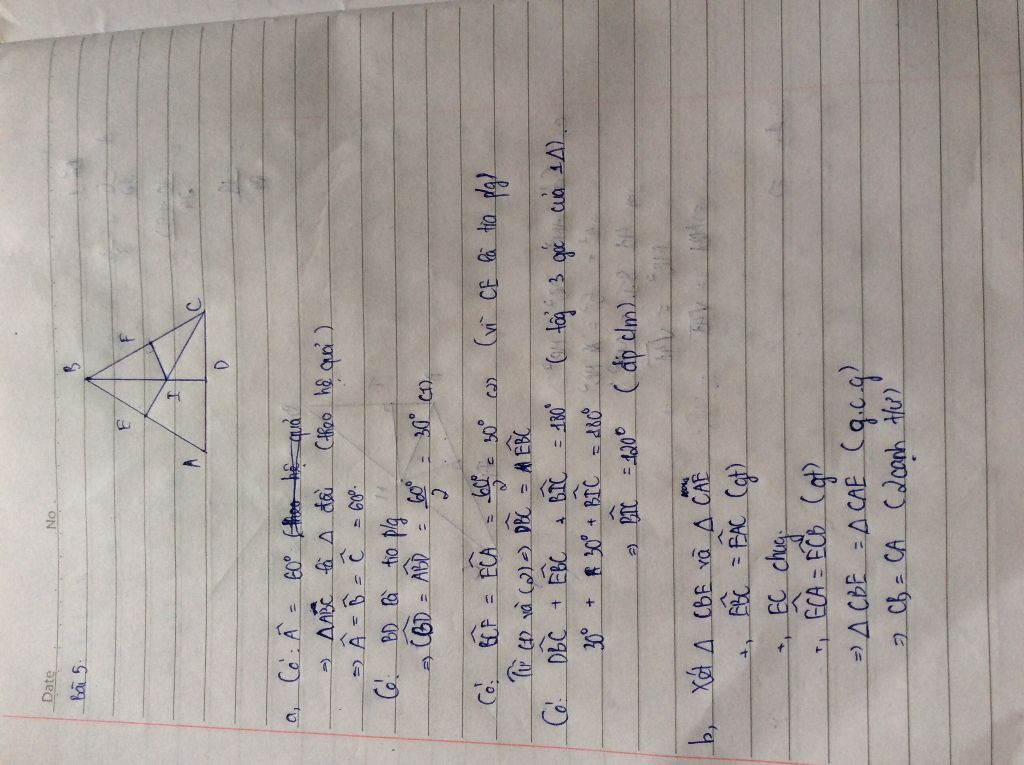 Date No.
Bài 5.
B
E
F
I
A
D
C
a, Có: Â = 60° (theo hệ quả
=> ΔABC là Δ đều (theo hệ quả)
=> Â = B̂ = Ĉ = 60°.
Có: BD là tia p/g
=> ĈBD = ÂBD = 60°/2 = 30° (1)
Có: BĈE = EĈA = 60°/2 = 30° (2) (vì CE là tia p/g)
Từ (1) và (2) => DB̂C = EB̂C
Có: DB̂C + EB̂C + BÎC = 180° (tổng 3 góc của 1Δ).
30° + 30° + BÎC = 180°
=> BÎC = 120° (đfcm)
b, Xét Δ CBE và Δ CAE
+, EB̂C = EÂC (gt)
+, EC chung
+, EĈA = EĈB (gt)
=> Δ CBE = Δ CAE (g.c.g)
=> CB = CA (2 cạnh t/ư)